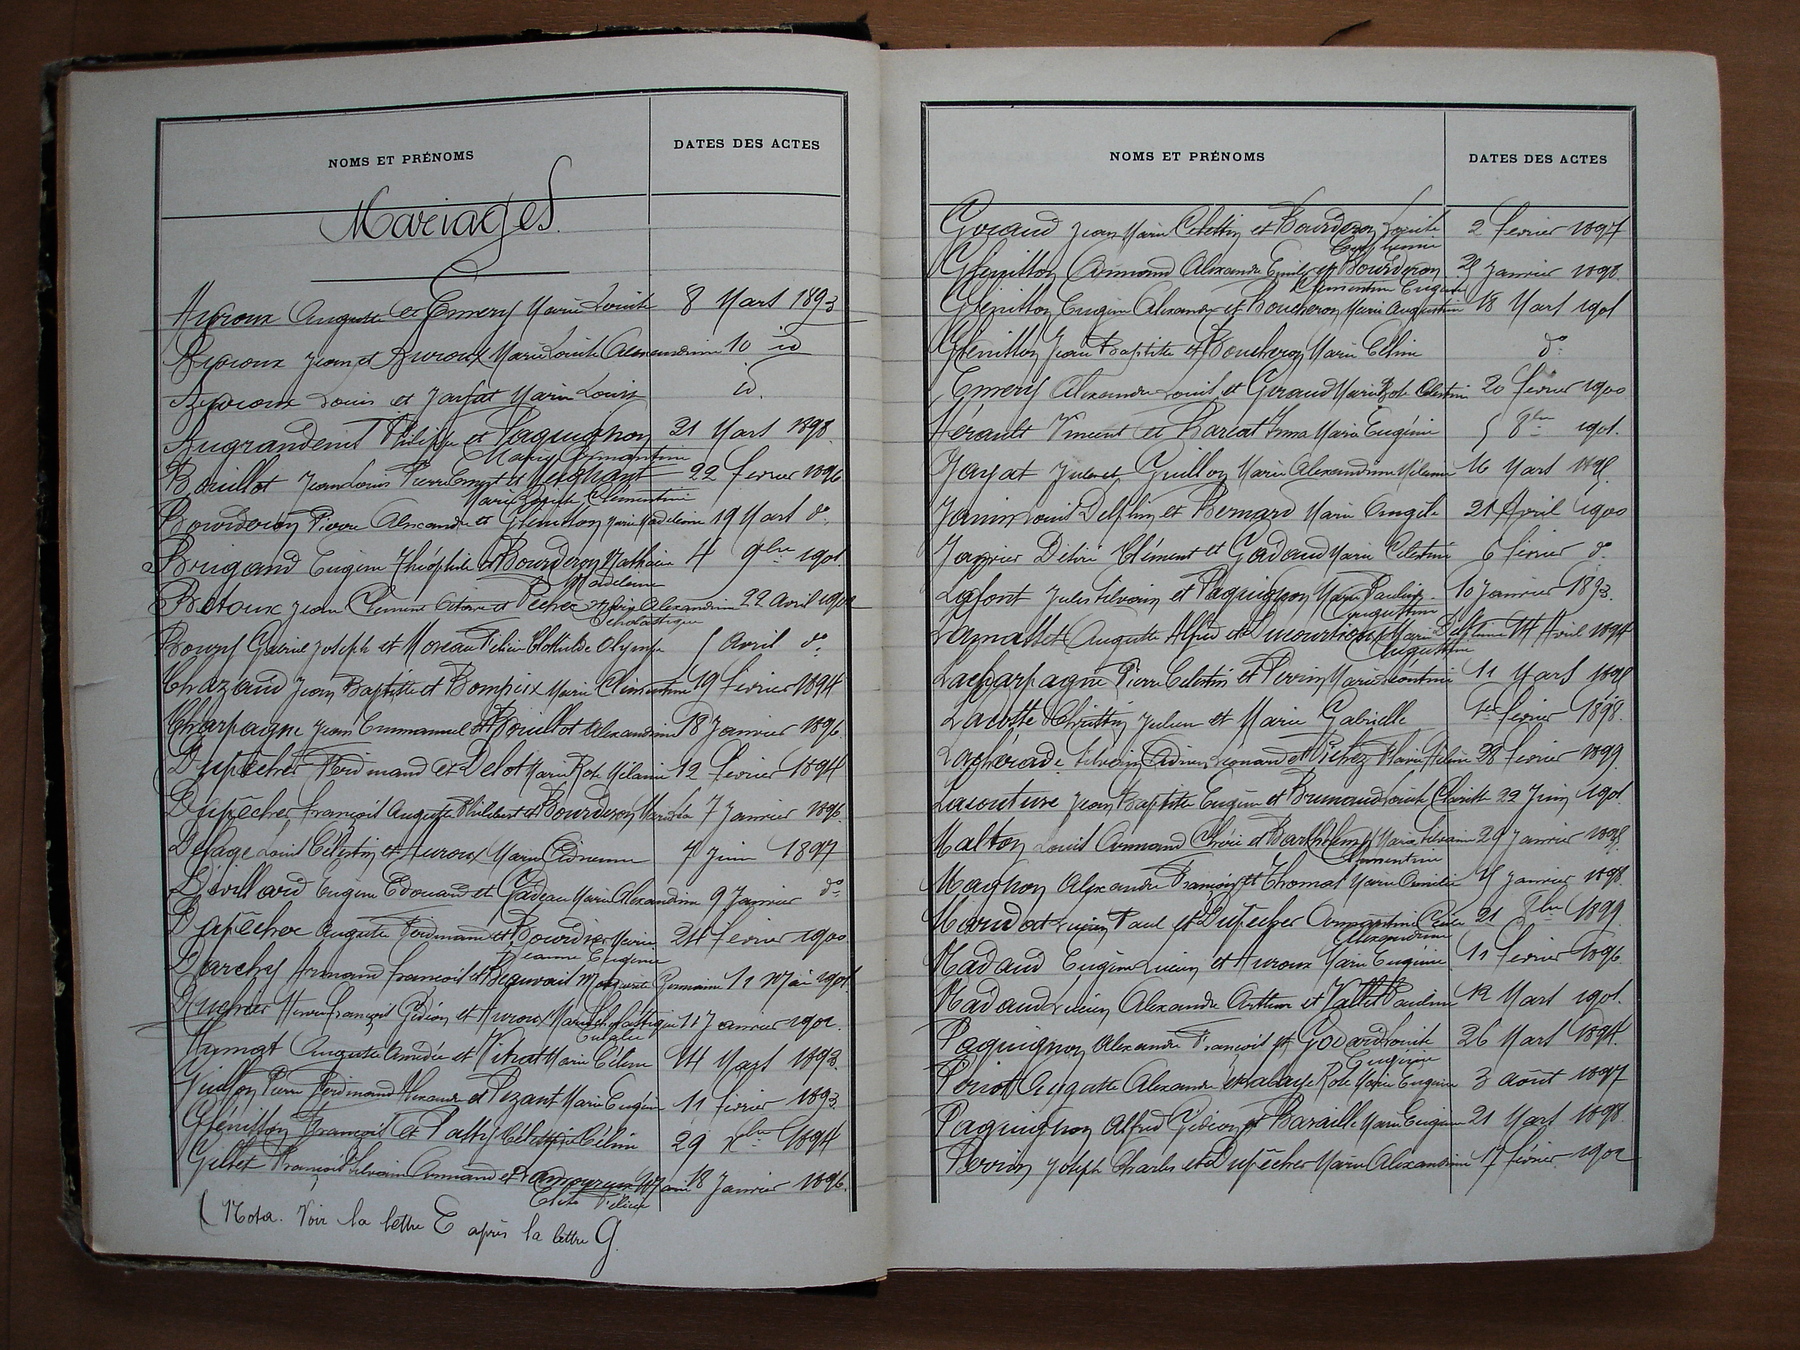 NOMS ET PRÉNOMS DATES DES ACTES
Mariages
Auroux Auguste et Emery Marie Louise 8 Mars 1893
Auroux Jean et Auroux Marie Louise Alexandrine 10 id
Auroux Louis et Jarfat Marie Louise id
Augrandenis Philippe et Paquignon 21 Mars 1898
Marie Armantine
Bouillot Jean Louis Pierre Ernest et 22 fevrier 1896
Marie Louise Clémentine
Bourderon Pierre Alexandre et Glénisson Marie Madeleine 19 Mars do
Brigand Eugène Théophile et Bourderon Nathalie 4 9bre 1901
Madeleine
Jean Clément et Alexandrine 22 Avril 1902
Scholastique
Gabriel Joseph et Moreau Félicie Clothilde Olympe 5 Avril do
Chazaud Jean Baptiste et Bompeix Marie Clémentine 19 fevrier 1894
Charpagne Jean Emmanuel et Bouillot Alexandrine 18 Janvier 1896
Dupêcher Ferdinand et Delot Marie Rose Mélanie 12 fevrier 1894
Dupêcher François Auguste Philibert et Bourderon 7 Janvier 1896
Defage Louis Célestin et Auroux Marie 7 Juin 1897
Eugène Edouard et Gadeau Marie Alexandrine 9 Janvier do
Dupêcher Auguste Ferdinand et Bourdier Marie 24 fevrier 1900
Jeanne Eugénie
Darchy Armand François et Beauvais Marguerite Germaine 11 Mai 1901
Henri François Gédéon et Auroux Marie Scholastique 11 Janvier 1902
Eulalie
Auguste Amédée et Marie Céline 14 Mars 1893
Guillon Pierre Ferdinand Alexandre et Pezant Marie Eugénie 11 fevrier 1893
Glénisson François et Célestine Céline 29 Xbre 1894
Gilbet François Silvain Armand et Lamoureux Marie 18 Janvier 1896
Félicie
(Nota. Voir la lettre E après la lettre G.
NOMS ET PRÉNOMS DATES DES ACTES
Giraud Jean Marie Célestin et Bourderon Louise 2 fevrier 1897
Euphémie
Glénisson Armand Alexandre Emile et Bourderon 29 Janvier 1898
Clémentine Eugénie
Glénisson Eugène Alexandre et Boucheron Marie Augustine 18 Mars 1901
Glénisson Jean Baptiste et Boucheron Marie Céline do
Emery Alexandre Louis et Giraud Marie Rose Célestine 20 fevrier 1900
Hérault Vincent et Bareat Irma Marie Eugénie 5 8bre 1901
Jayat Jules et Guillon Marie Alexandrine Mélanie 16 Mars 1895
Janin Louis Delphin et Bernard Marie Angèle 21 Avril 1900
Désiré Clément et Gadaud Marie Célestine 6 février do
Lafont Jules Silvain et Paquignon Marie Pauline 10 Janvier 1893
Augustine
Auguste Alfred et Marie Delphine 14 Avril 1894
Augustine
Lacharpagne Pierre Célestin et Perrin Marie Léontine 11 Mars 1898
Lacotte Christin Julien et Marie Gabrielle 1er fevrier 1898
Silvain Léonard et Marie 28 fevrier 1899
Lacouture Jean Baptiste Eugène et Brunaud Louise Clarisse 22 Juin 1901
Malton Louis Armand Chéri et Barthélemy Marie Silvaine 29 Janvier 1895
Clémentine
Magnon Alexandre François et Thomas Marie Amélie 15 Janvier 1898
Paul et Dupêcher Armantine 21 8bre 1899
Alexandrine
Nadaud Eugène Lucien et Auroux Marie Eugénie 11 fevrier 1896
Nadaud Lucien Alexandre Arthur et Vallet Pauline 12 Mars 1901
Paquignon Alexandre François et Godard Louise 26 Mars 1894
Eugénie
Auguste Alexandre et Rose Marie Eugénie 3 août 1897
Paquignon Alfred Gédéon et Baraille Marie Eugénie 21 Mars 1898
Perrin Joseph Charles et Dupêcher Marie Alexandrine 17 février 1902